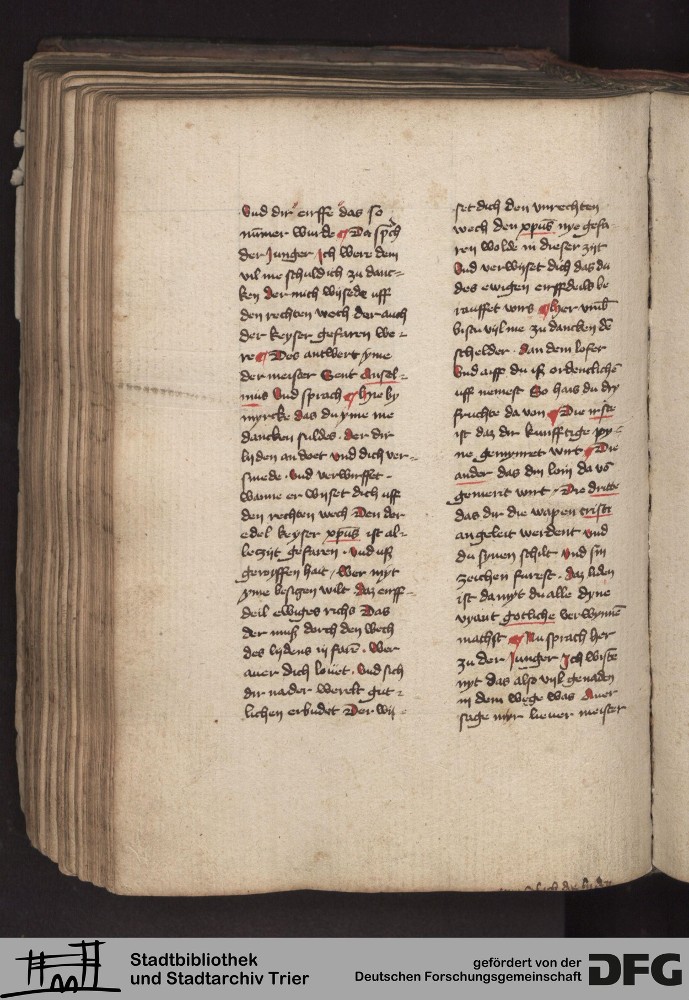 Vnd dir eiffe das so
nūmer wurde Da sprach
der Junger Ich were dem
vil me schuldich zu danc-
ken der mich wijsede uff
den rechten wech der auch
der keyser gefaren we-
re Des antwert yme
der meister Sent Ansel-
mus Vnd sprach Hie by
myrcke das du yme me
dancken suldes. der dir
lyden an doet vnd dich ver-
smede. Vnd verwirffet.
wanne er wijset dich uff
den rechten wech Den der
edel keyser xp̄us ist al-
leczijt gefaren. vnd uß
geworffen hait / Wer myt
yme besigen wilt daz erff-
deil ewiges richs Das
der muß dorch den wech
des lydens in farē. Wer
auer dich louet. Vnd sich
dir na der werelt gut-
lichen erbudet Der wij-
set dich den vnrechten
wech den xp̄us nye gefa-
ren wolde in dieser zijt
Vnd verwijset dich das du
des ewigen erffdeils be
rauffet wirs Her vmb
bistu vil me zu dancken dē
schelder. dan dem lofer
Vnd aiff du iß ordenclichē
uff nemest So hais du dry
fruchte da von Die irste
ist daz dir kunfftige py-
ne gemynret wirt Die
ander das din loin da vō
gemeret wirt. Die dritte
das dir die wapen cristi
angeleit werdent vnd
du synen schilt vnd sin
zeichen furest. daz liden
ist damyt du alle dyne
vyant gotliche verwynnē
machst Nu sprach her
zu der Junger Ich wiste
nyt das also vil genaden
in dem wege was Auer
sage myr lieuer meister
Stadtbibliothek
und Stadtarchiv Trier
gefördert von der
Deutschen Forschungsgemeinschaft
DFG